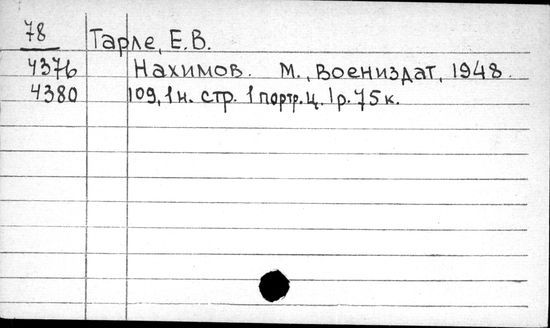 78 Тарле, Е.В.
4376 Нахимов. М., Воениздат, 1948.
4380 109, 1 н. стр. 1 портр. ц. 1р. 75к.